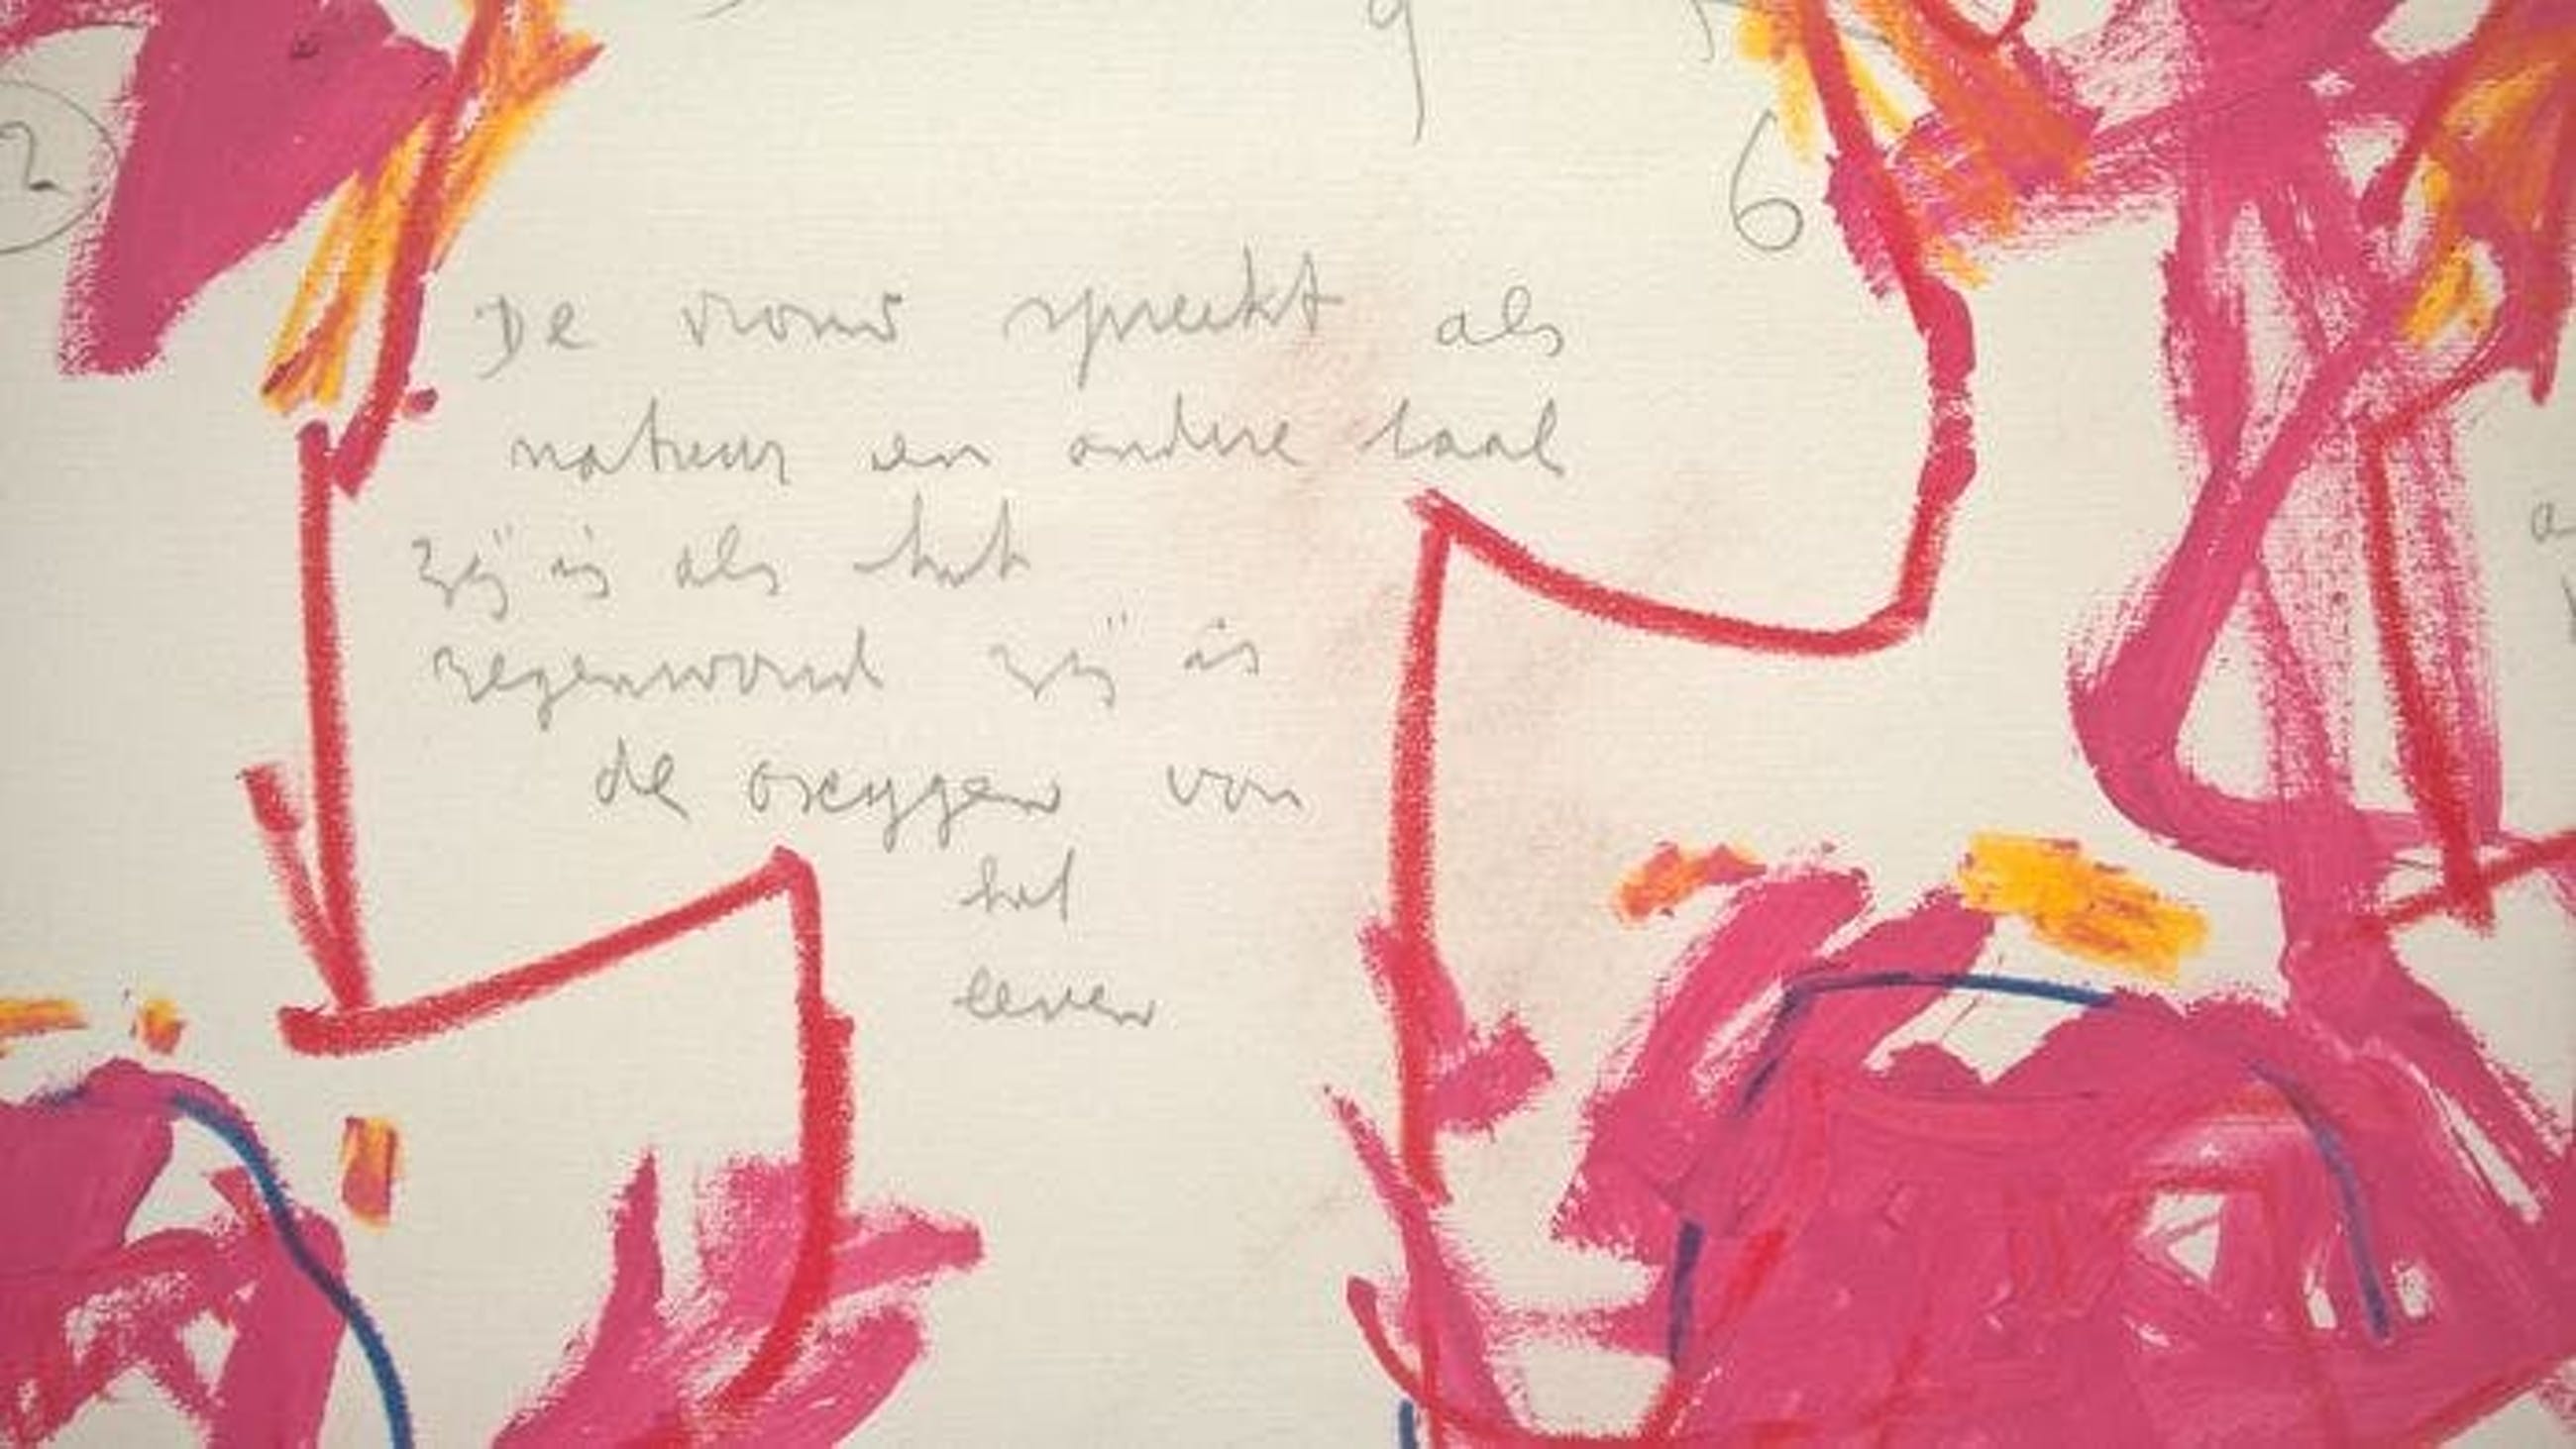 9
2
6
De vrouw spreekt als
natuur en andere taal
zij is als het
regenwoud zij is
de oxygen van
het
leven